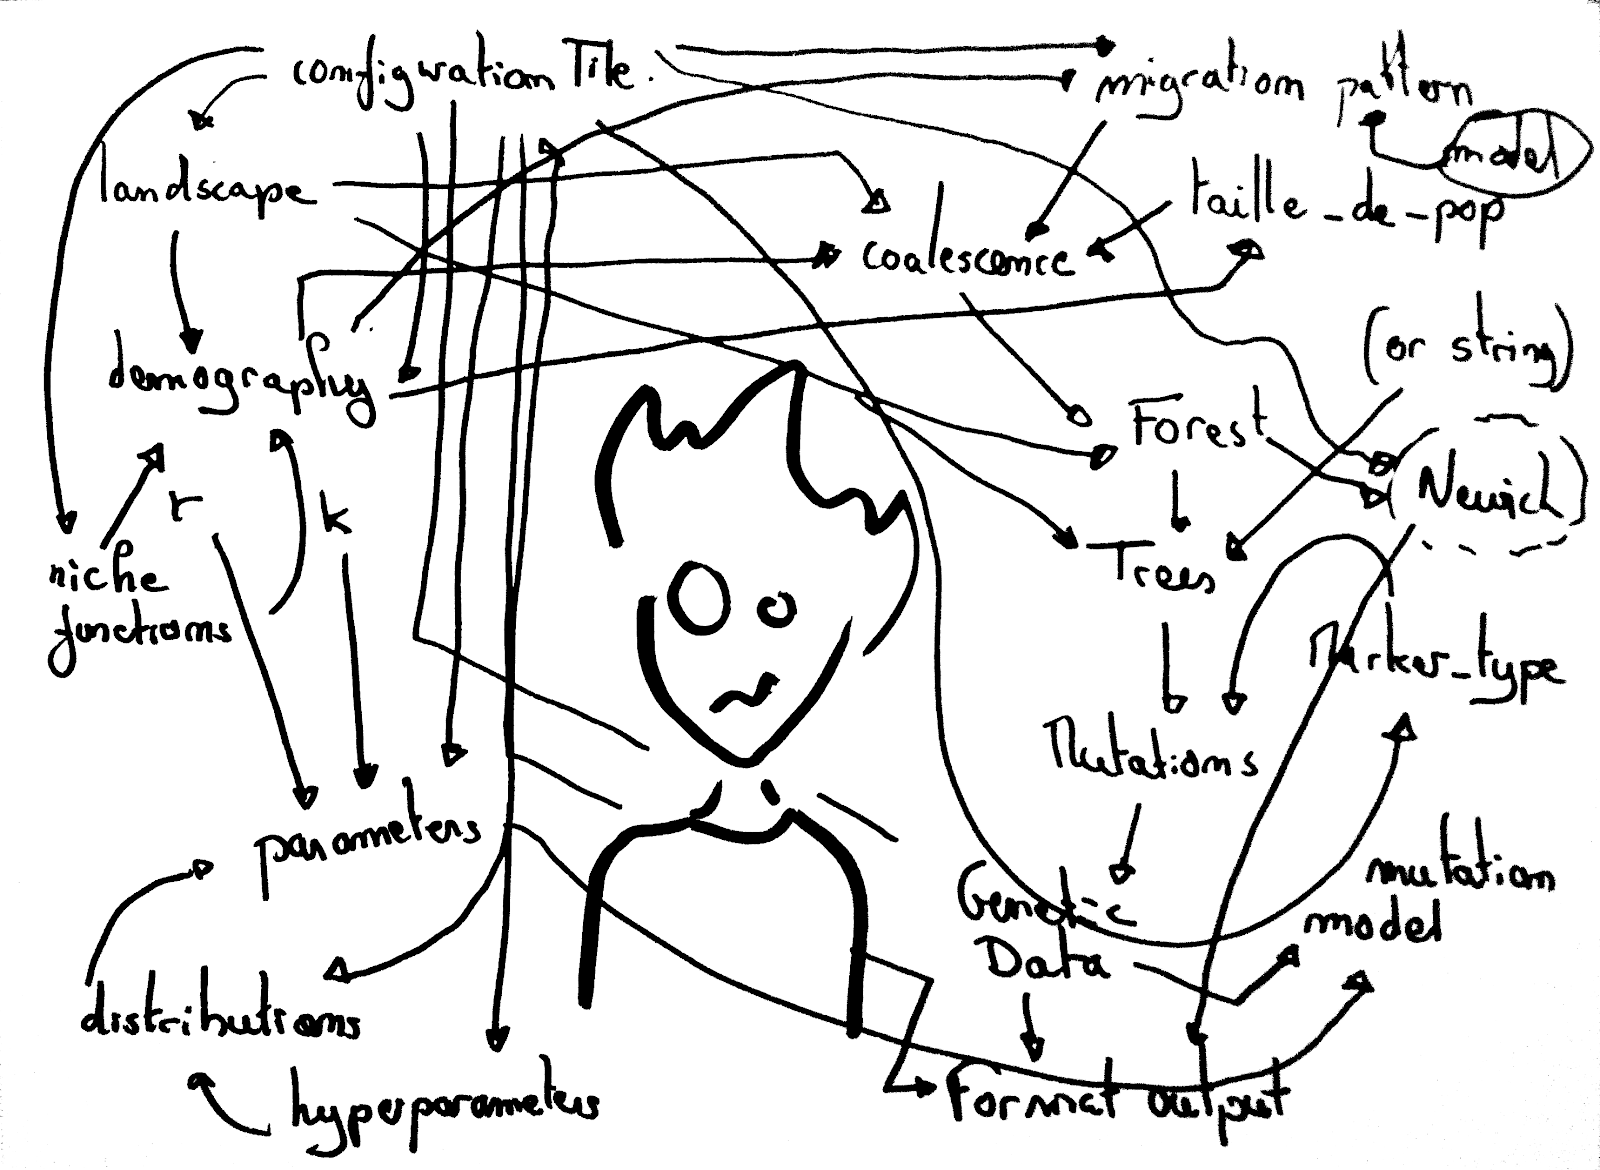 configuration file.
migration pattern
model
landscape
taille_de_pop
coalescence
(or string)
demography
Forest
(Newick)
r
k
Trees
niche
functions
Marker_type
Mutations
parameters
mutation
model
Genetic
Data
distributions
hyperparameters
Format output